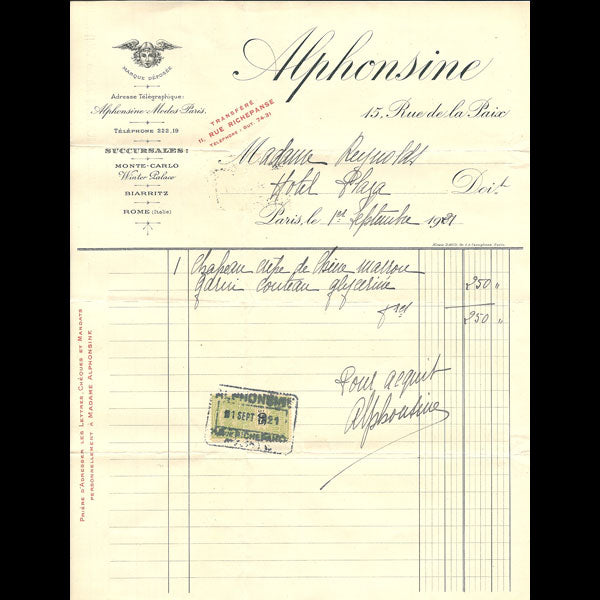 Alphonsine
MARQUE DÉPOSÉE
Adresse Télégraphique:
Alphonsine-Modes-Paris.
TÉLÉPHONE 222.19
SUCCURSALES:
MONTE-CARLO
Winter Palace
BIARRITZ
ROME (Italie)
15, Rue de la Paix
TRANSFÉRÉ
11, RUE RICHEPANSE
TÉLÉPHONE: GUT. 74-21
Madame Reynolds
Hotel Plaza Doit
Paris, le 1er Septembre 1921
1 Chapeau crêpe de Chine marron
garni couteau glycerine 250 "
250 "
Pour acquit
Alphonsine
ALPHONSINE
01 SEPT 1921
PRIÈRE D'ADRESSER LES LETTRES, CHÈQUES ET MANDATS
PERSONNELLEMENT À MADAME ALPHONSINE